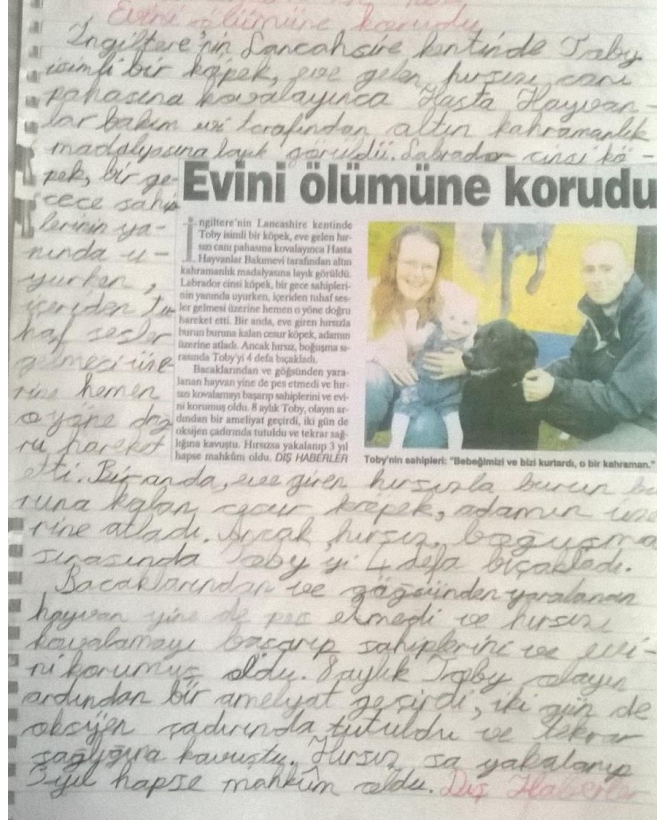 Evini ölümüne korudu
İngiltere'nin Lancahsire kentinde Toby
isimli bir köpek, eve gelen hırsızı canı
pahasına kovalayınca Hasta Hayvan-
lar bakım evi tarafından altın kahramanlık
madalyasına layık görüldü. Labrador cinsi kö-
pek, bir ge-
cece sahip
lerinin ya-
nında u-
yurken,
içeriden tu-
haf sesler
gelmesi üze-
rine hemen
o yöne doğ
ru hareket
etti. Bir anda, eve giren hırsızla burun bu
runa kalan cesur köpek, adamın üze
rine atladı. Ancak hırsız, boğuşma
sırasında Toby'yi 4 defa bıçakladı.
Bacaklarından ve göğsünden yaralanan
hayvan yine de pes etmedi ve hırsızı
kovalamayı başarıp sahiplerini ve evi-
ni korumuş oldu. 8 aylık Toby olayın
ardından bir ameliyat geçirdi, iki gün de
oksijen çadırında tutuldu ve tekrar
sağlığına kavuştu. Hırsız sa yakalanıp
3 yıl hapse mahkûm oldu. Dış Haberler
Evini ölümüne korudu
İngiltere'nin Lancashire kentinde
Toby isimli bir köpek, eve gelen hır-
sızı canı pahasına kovalayınca Hasta
Hayvanlar Bakımevi tarafından altın
kahramanlık madalyasına layık görüldü.
Labrador cinsi köpek, bir gece sahipleri-
nin yanında uyurken, içeriden tuhaf ses-
ler gelmesi üzerine hemen o yöne doğru
hareket etti. Bir anda, eve giren hırsızla
burun buruna kalan cesur köpek, adamın
üzerine atladı. Ancak hırsız, boğuşma sı-
rasında Toby'yi 4 defa bıçakladı.
Bacaklarından ve göğsünden yara-
lanan hayvan yine de pes etmedi ve hır-
sızı kovalamayı başarıp sahiplerini ve evi-
ni korumuş oldu. 8 aylık Toby, olayın ar-
dından bir ameliyat geçirdi, iki gün de
oksijen çadırında tutuldu ve tekrar sağ-
lığına kavuştu. Hırsızsa yakalanıp 3 yıl
hapse mahkûm oldu. DIŞ HABERLER
Toby'nin sahipleri: "Bebeğimizi ve bizi kurtardı, o bir kahraman."